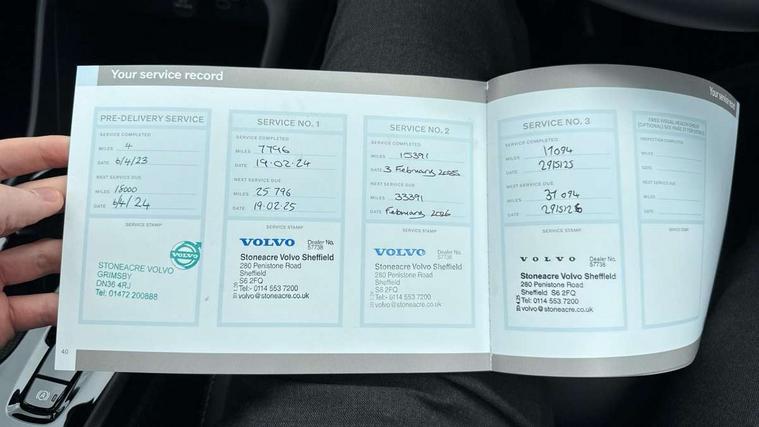 Your service record
Your service record
PRE-DELIVERY SERVICE
SERVICE COMPLETED
MILES 4
DATE 6/4/23
NEXT SERVICE DUE
MILES 18000
DATE 6/4/24
SERVICE STAMP
VOLVO
STONEACRE VOLVO
GRIMSBY
DN36 4RJ
Tel: 01472 200888
SERVICE NO. 1
SERVICE COMPLETED
MILES 7796
DATE 19.02.24
NEXT SERVICE DUE
MILES 25 796
DATE 19.02.25
SERVICE STAMP
VOLVO Dealer No.
57738
Stoneacre Volvo Sheffield
280 Penistone Road
Sheffield
S6 2FQ
Tel:- 0114 553 7200
volvo@stoneacre.co.uk
SERVICE NO. 2
SERVICE COMPLETED
MILES 15391
DATE 3 February 2025
NEXT SERVICE DUE
MILES 33391
DATE February 2026
SERVICE STAMP
VOLVO Dealer No.
57738
Stoneacre Volvo Sheffield
280 Penistone Road
Sheffield
S6 2FQ
Tel:- 0114 553 7200
volvo@stoneacre.co.uk
SERVICE NO. 3
SERVICE COMPLETED
MILES 17094
DATE 29/5/25
NEXT SERVICE DUE
MILES 094
DATE 29/5/26
SERVICE STAMP
VOLVO Dealer No.
57738
Stoneacre Volvo Sheffield
280 Penistone Road
Sheffield S6 2FQ
Tel: 0114 553 7200
volvo@stoneacre.co.uk
FREE VISUAL HEALTH CHECK
INSPECTION COMPLETED
MILES
DATE
NEXT SERVICE DUE
MILES
DATE
SERVICE STAMP
40